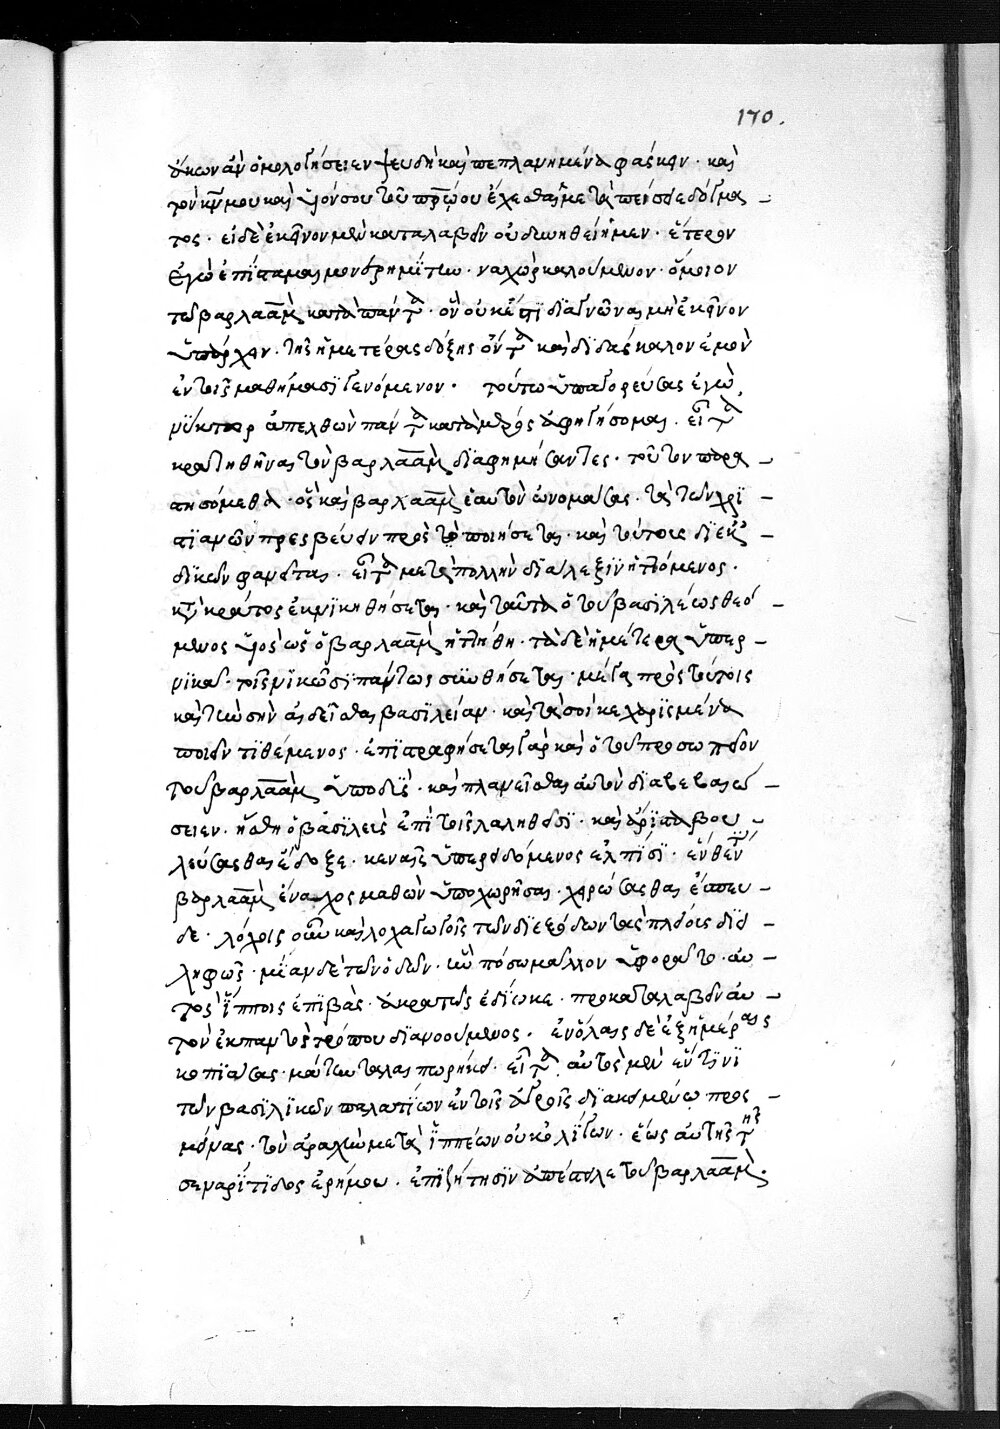 170.
ἄκων ἂν ὁμολογήσειεν ψευδῆ καὶ πεπλανημένα φάσκειν · καὶ
τὸν κύριόν μου καὶ υἱόν σου τοῦ προτέρου ἔχεσθαι μετὰ
τος · εἰ δὲ ἐκεῖνον μὲν καταλαβεῖν οὐ δυνηθείημεν · ἕτερον
ἐγὼ ἐπίσταμαι μονερημίτην · ναχὼρ καλούμενον · ὅμοιον
τῶ βαρλαὰμ κατὰ πάντα · ὃν οὐκ ἔστι διαγνῶναι μὴ ἐκεῖνον
ὑπάρχειν · τῆς ἡμετέρας δόξης ὄντα καὶ διδάσκαλον ἐμὸν
ἐν τοῖς μαθήμασι γενόμενον · τούτω ὑπαγορεύσας ἐγὼ
νύκτωρ ἀπελθὼν πάντα κατὰ μέρος ἀφηγήσομαι · εἶτα
κρατηθῆναι τὸν βαρλαὰμ διαφημήσαντες · τοῦτον παρα -
στησόμεθα · ὃς καὶ βαρλαὰμ ἑαυτὸν ὀνομάσας · τὰ τῶν χρι -
στιανῶν πρεσβεύειν προσποιήσεται · καὶ τούτοις διεκ -
δικῶν φανεῖται · εἶτα μετὰ πολλὴν διάλεξιν ἡττώμενος ·
κατὰ κράτος ἐκνικηθήσεται · καὶ ταῦτα ὁ τοῦ βασιλέως θεώ -
μενος υἱὸς ὡς ὁ βαρλαὰμ ἡττήθη · τὰ δὲ ἡμέτερα ὑπερ -
νικᾶ · τοῖς νικῶσι πάντως συνθήσεται · μέγα πρὸς τούτοις
καὶ τὴν σὴν αἰδεῖσθαι βασιλείαν · καὶ τὰ σοὶ κεχαρισμένα
ποιεῖν τιθέμενος · ἐπιστραφήσεται γὰρ καὶ ὁ τὸ προσωπεῖον
τοῦ βαρλαὰμ ὑποδὺς · καὶ πλανεῖσθαι αὐτὸν διαβεβαιώ -
σειεν · ἥσθη ὁ βασιλεὺς ἐπὶ τοῖς λαληθεῖσι · καὶ ἄριστα βου -
λεύσασθαι ἔδοξε · κεναῖς ὑπερειδόμενος ἐλπίσι · ἔνθεν τοι
βαρλαὰμ ἔναγχος μαθὼν ὑποχωρῆσαι · χειρώσασθαι ἔσπευ -
δε · λόχοις οὖν καὶ λοχαγωγοῖς τῶν διεξόδων τὰς πλείους διει -
ληφὼς · μίαν δὲ τῶν ὁδῶν · ἣν πόσω μᾶλλον ὑφορᾶτο · αὐ -
τὸς ἵπποις ἐπιβὰς · ἀκρατῶς ἐδίωκε · προκαταλαβεῖν αὐ -
τὸν ἐκ παντὸς τρόπου διανοούμενος · ἐν ὅλαις δὲ ἓξ ἡμέραις
κοπιάσας · μάτην ταλαιπωρεῖται · εἶτα αὐτὸς μὲν ἔν τινι
τῶν βασιλικῶν παλατίων ἐν τοῖς ἀγροῖς διακειμένω προς -
μείνας · τὸν ἀραχὴν μετὰ ἱππέων οὐκ ὀλίγων · ἕως αὐτῆς τῆς
σεναριτιδος ἐρήμου · ἐπιζήτησιν ἀπέστειλε τοῦ βαρλαὰμ ·